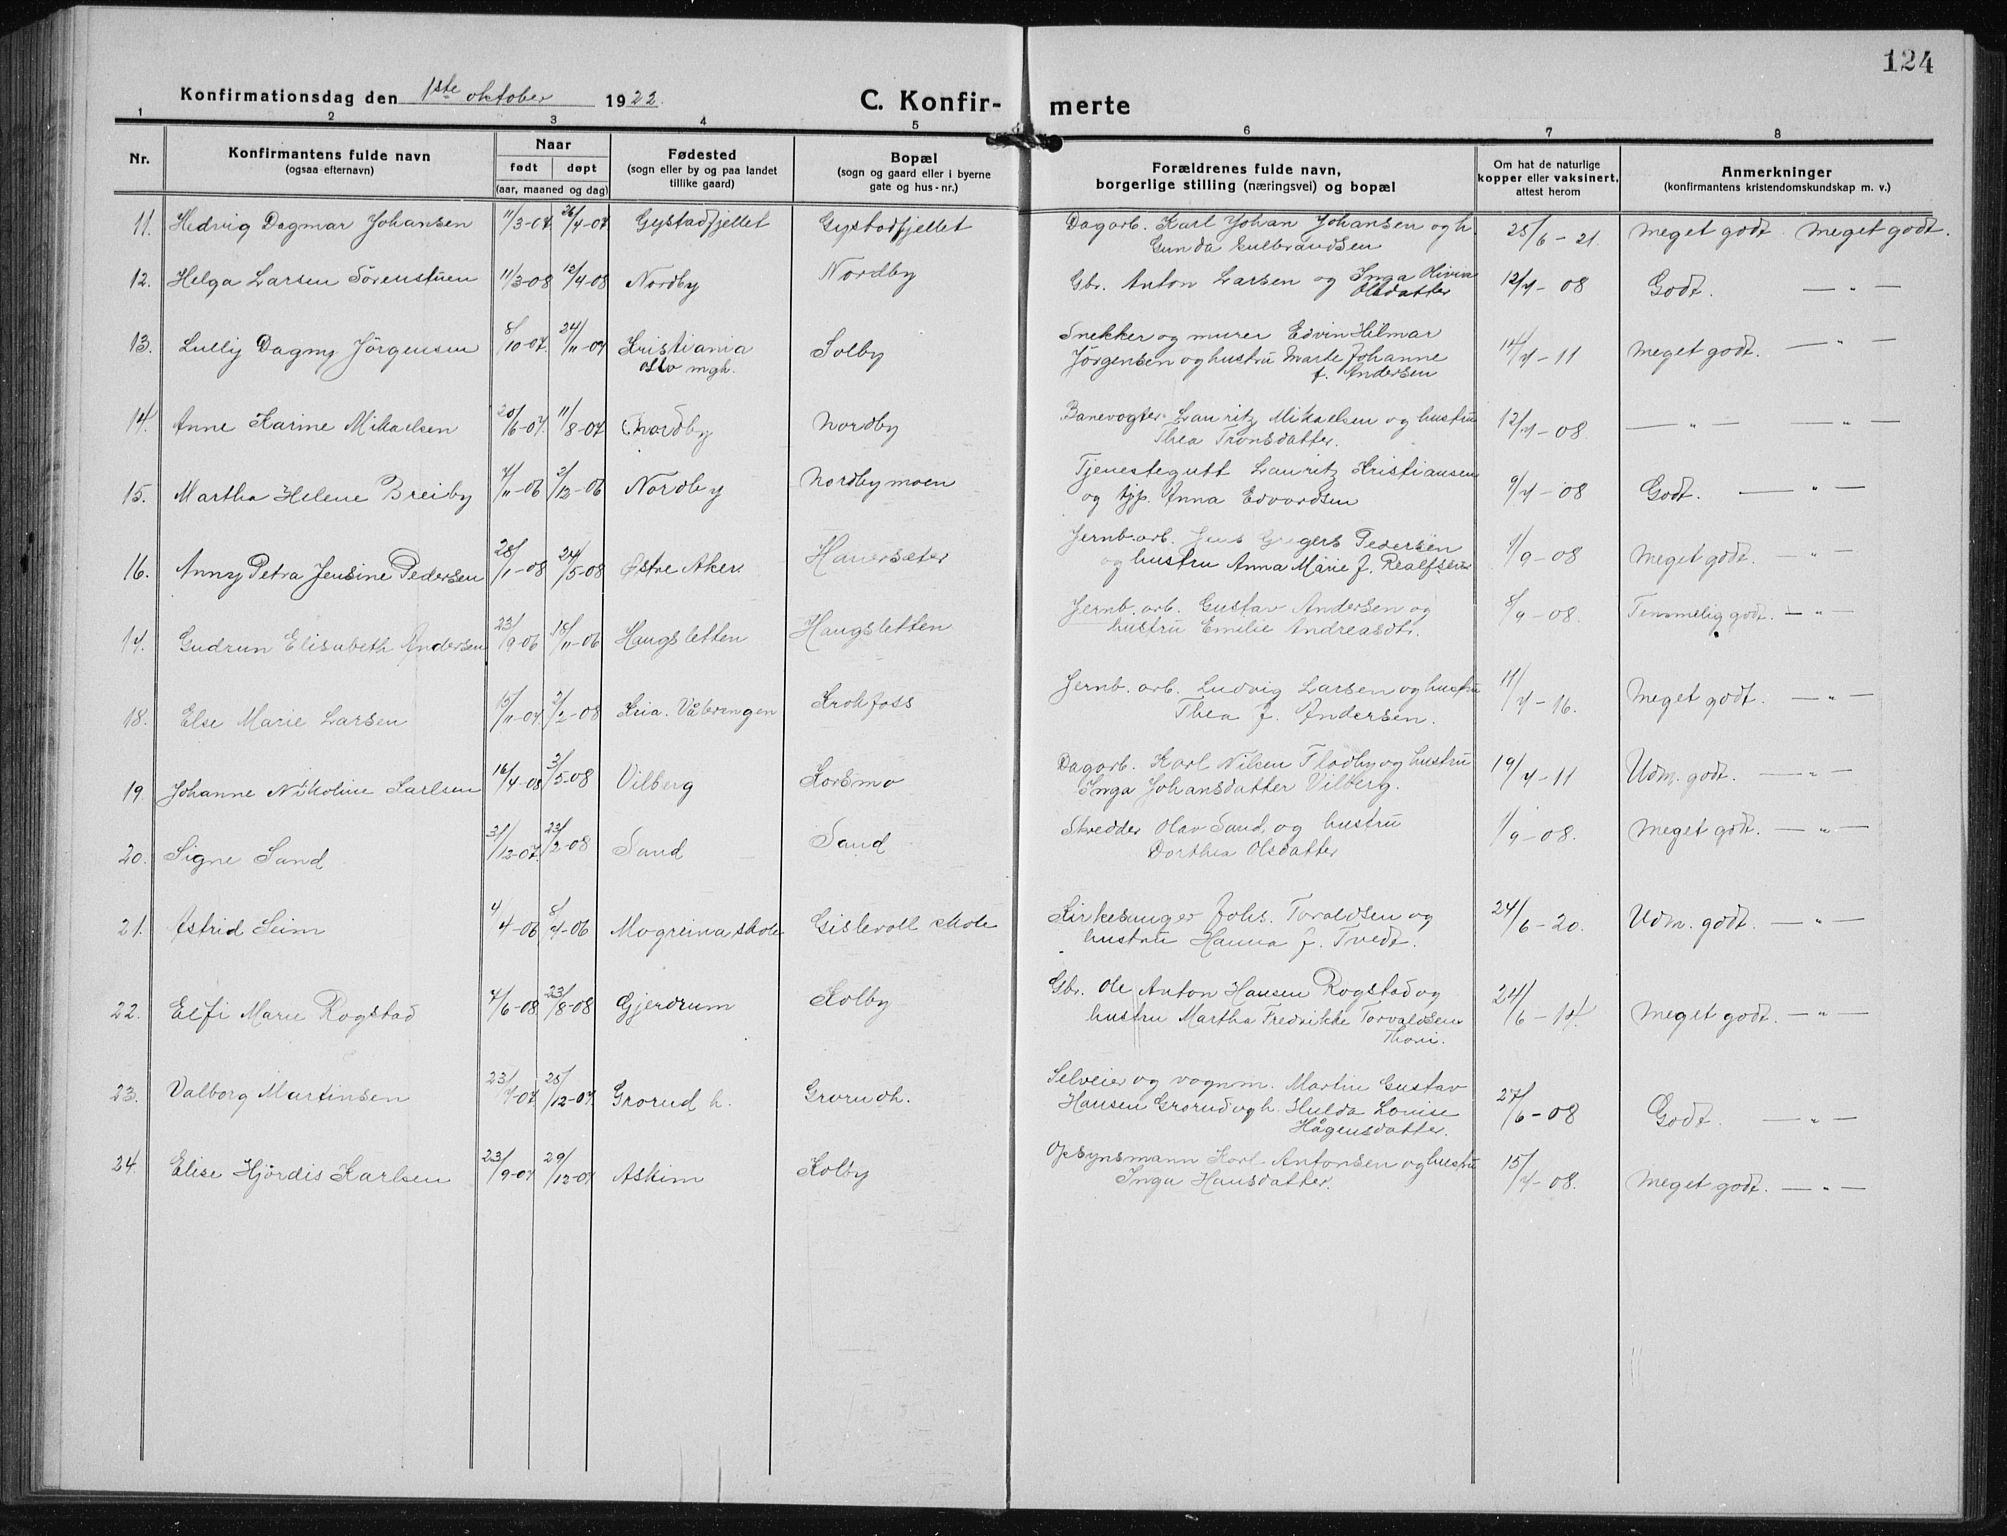 124
Konfirmationsdag den 1ste oktober 1922.
C. Konfir- merte
1 2 3 4 5 6 7 8
Nr.
Konfirmantens fulde navn
(ogsaa efternavn)
Naar
født døpt
(aar, maaned og dag)
Fødested
(sogn eller by og paa landet
tillike gaard)
Bopæl
(sogn og gaard eller i byerne
gate og hus-nr.)
Forældrenes fulde navn,
borgerlige stilling (næringsvei) og bopæl
Om hat de naturlige
kopper eller vaksinert,
attest herom
Anmerkninger
(konfirmantens kristendomskundskap m. v.)
11. Hedvig Dagmar Johansen 11/3-07. 26/4-07 Gystadfjellet Gystadfjellet Dagarb. Karl Johan Johansen og h. 25/6-21. Meget godt. Meget godt.
Gunda Gulbrandsen
12. Helga Larsen Sörenstuen 11/3-08 12/4-08 Nordby Nordby Gbr. Anton Larsen og Inga Olivia 12/7-08 Godt. — „ —
Olsdatter
13. Lully Dagny Jörgensen 8/10-07. 24/11-07 Kristiania Solby Snekker og murer Edvin Hilmar 14/7-11 Meget godt. — „ —
Oslo mgh. Jörgensen og hustru Marte Johanne
f. Andersen
14. Anne Karine Mikaelsen 20/6-07. 11/8-07 Nordby Nordby Banevogter Lauritz Mikaelsen og hustru 12/7-08. — „ — — „ —
Thea Tronsdatter.
15. Martha Helene Breiby 7/11-06 2/12-06 Nordby Nordbymoen Tjenestegutt Lauritz Kristiansen 9/7-08 Godt. — „ —
og tjp. Anna Edvardsen
16. Anny Petra Jensine Pedersen 28/1-08 24/5-08 Østre Aker Hauersæter Jernb. arb. Jens Gregers Pedersen 1/9-08 Meget godt. — „ —
og hustru Anna Marie f. Realfsen
17. Gudrun Elisabeth Andersen 23/9-06 18/11-06 Haugsletten Haugsletten Jernb. arb. Gustav Andersen og 8/9-08. Temmelig godt. — „ —
hustru Emilie Andreasdt.
18. Else Marie Larsen 15/11-07 2/2-08 Kria. Vålerengen Krokfoss Jernb. arb. Ludvig Larsen og hustru 11/7-16. Meget godt. — „ —
Thea f. Andersen.
19. Johanne Nikoline Karlsen 16/4-08 3/5-08 Vilberg Korsmo Dagarb. Karl Nilsen Flodby og hustru 19/7-11 Udm. godt. — „ —
Inga Johansdatter Vilberg.
20. Signe Sand 31/12-07 23/2-08 Sand Sand Skredder Olav Sand og hustru 1/9-08. Meget godt. — „ —
Dorthea Olsdatter
21. Astrid Seim 4/4-06 8/7-06 Mogreina skole Gislevoll skole Kirkesanger Johs. Toraldsen og 24/6-20. Udm. godt. — „ —
hustru Hanna f. Tvedt.
22. Elfi Marie Rogstad 7/6-08 23/8-08 Gjerdrum Kolby Gbr. Ole Anton Hansen Rogstad og 24/6-14. Meget godt. — „ —
hustru Martha Fredrikke Torvaldsen
23. Valborg Martinsen 23/9-07 25/12-07. Grorud h. Grorud h. Selveier og vognm. Martin Gustav 27/6-08 Godt. — „ —
Hansen Grorud og h. Hulda Louise
Hågensdatter.
24. Elise Hjördis Karlsen 23/9-07 29/12-07 Askim Kolby Opsynsmann Karl Antonsen og hustru 15/7-08. Meget godt. — „ —
Inga Hansdatter.